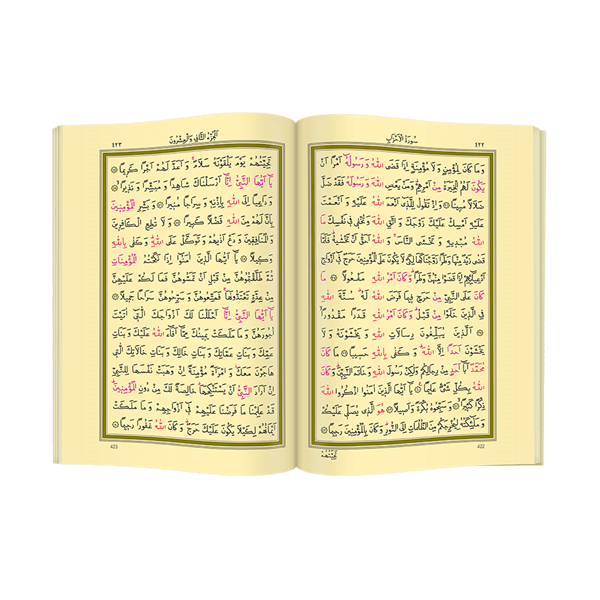 ٤٢٢ سُورَةُ الْاَحْزَابِ
وَمَا كَانَ لِمُؤْمِنٍ وَلَا مُؤْمِنَةٍ اِذَا قَضَى اللّٰهُ وَرَسُولُهُٓ اَمْرًا اَنْ
يَكُونَ لَهُمُ الْخِيَرَةُ مِنْ اَمْرِهِمْ وَمَنْ يَعْصِ اللّٰهَ وَرَسُولَهُ فَقَدْ ضَلَّ
ضَلَالًا مُبِينًا ۝ وَاِذْ تَقُولُ لِلَّذِٓي اَنْعَمَ اللّٰهُ عَلَيْهِ وَاَنْعَمْتَ
عَلَيْهِ اَمْسِكْ عَلَيْكَ زَوْجَكَ وَاتَّقِ اللّٰهَ وَتُخْفِي فِي نَفْسِكَ مَا
اللّٰهُ مُبْدِيهِ وَتَخْشَى النَّاسَ وَاللّٰهُ اَحَقُّ اَنْ تَخْشٰيهُ فَلَمَّا
قَضٰى زَيْدٌ مِنْهَا وَطَرًا زَوَّجْنَاكَهَا لِكَيْ لَا يَكُونَ عَلَى الْمُؤْمِنِينَ حَرَجٌ فِٓي اَزْوَاجِ
اَدْعِيَٓائِهِمْ اِذَا قَضَوْا مِنْهُنَّ وَطَرًا وَكَانَ اَمْرُ اللّٰهِ مَفْعُولًا ۝ مَا
كَانَ عَلَى النَّبِيِّ مِنْ حَرَجٍ فِيمَا فَرَضَ اللّٰهُ لَهُ سُنَّةَ اللّٰهِ
فِي الَّذِينَ خَلَوْا مِنْ قَبْلُ وَكَانَ اَمْرُ اللّٰهِ قَدَرًا مَقْدُورًا
۝ اَلَّذِينَ يُبَلِّغُونَ رِسَالَاتِ اللّٰهِ وَيَخْشَوْنَهُ وَلَا
يَخْشَوْنَ اَحَدًا اِلَّا اللّٰهَ وَكَفٰى بِاللّٰهِ حَسِيبًا ۝ مَا كَانَ
مُحَمَّدٌ اَبَٓا اَحَدٍ مِنْ رِجَالِكُمْ وَلٰكِنْ رَسُولَ اللّٰهِ وَخَاتَمَ النَّبِيّٖنَ وَكَانَ
اللّٰهُ بِكُلِّ شَيْءٍ عَلِيمًا ۝ يَٓا اَيُّهَا الَّذِينَ اٰمَنُوا اذْكُرُوا اللّٰهَ
ذِكْرًا كَثِيرًا ۝ وَسَبِّحُوهُ بُكْرَةً وَاَصِيلًا ۝ هُوَ الَّذِي يُصَلِّي عَلَيْكُمْ
وَمَلٰٓئِكَتُهُ لِيُخْرِجَكُمْ مِنَ الظُّلُمَاتِ اِلَى النُّورِ وَكَانَ بِالْمُؤْمِنِينَ رَحِيمًا ۝
422
تَحِيَّتُهُمْ
اَلْجُزْءُ الثَّانِي وَالْعِشْرُونَ ٤٢٣
تَحِيَّتُهُمْ يَوْمَ يَلْقَوْنَهُ سَلَامٌ وَاَعَدَّ لَهُمْ اَجْرًا كَرِيمًا ۝
يَٓا اَيُّهَا النَّبِيُّ اِنَّٓا اَرْسَلْنَاكَ شَاهِدًا وَمُبَشِّرًا وَنَذِيرًا ۝
وَدَاعِيًا اِلَى اللّٰهِ بِاِذْنِهِ وَسِرَاجًا مُنِيرًا ۝ وَبَشِّرِ الْمُؤْمِنِينَ
بِاَنَّ لَهُمْ مِنَ اللّٰهِ فَضْلًا كَبِيرًا ۝ وَلَا تُطِعِ الْكَافِرِينَ
وَالْمُنَافِقِينَ وَدَعْ اَذٰيهُمْ وَتَوَكَّلْ عَلَى اللّٰهِ وَكَفٰى بِاللّٰهِ
وَكِيلًا ۝ يَٓا اَيُّهَا الَّذِينَ اٰمَنُٓوا اِذَا نَكَحْتُمُ الْمُؤْمِنَاتِ
ثُمَّ طَلَّقْتُمُوهُنَّ مِنْ قَبْلِ اَنْ تَمَسُّوهُنَّ فَمَا لَكُمْ عَلَيْهِنَّ
مِنْ عِدَّةٍ تَعْتَدُّونَهَا فَمَتِّعُوهُنَّ وَسَرِّحُوهُنَّ سَرَاحًا جَمِيلًا ۝
يَٓا اَيُّهَا النَّبِيُّ اِنَّٓا اَحْلَلْنَا لَكَ اَزْوَاجَكَ الّٰتِٓي اٰتَيْتَ
اُجُورَهُنَّ وَمَا مَلَكَتْ يَمِينُكَ مِمَّٓا اَفَٓاءَ اللّٰهُ عَلَيْكَ وَبَنَاتِ
عَمِّكَ وَبَنَاتِ عَمَّاتِكَ وَبَنَاتِ خَالِكَ وَبَنَاتِ خَالَاتِكَ الّٰتِي
هَاجَرْنَ مَعَكَ وَامْرَاَةً مُؤْمِنَةً اِنْ وَهَبَتْ نَفْسَهَا لِلنَّبِيِّ
اِنْ اَرَادَ النَّبِيُّ اَنْ يَسْتَنْكِحَهَا خَالِصَةً لَكَ مِنْ دُونِ الْمُؤْمِنِينَ
قَدْ عَلِمْنَا مَا فَرَضْنَا عَلَيْهِمْ فِٓي اَزْوَاجِهِمْ وَمَا مَلَكَتْ
اَيْمَانُهُمْ لِكَيْلَا يَكُونَ عَلَيْكَ حَرَجٌ وَكَانَ اللّٰهُ غَفُورًا رَحِيمًا ۝
423